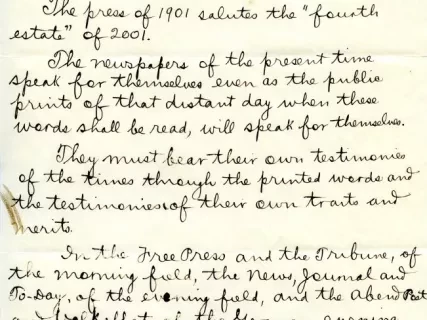 The press of 1901 salutes the "fourth
estate" of 2001.
The newspapers of the present time
speak for themselves even as the public
prints of that distant day when these
words shall be read, will speak for themselves.
They must bear their own testimonies
of the times through the printed words and
the testimonies of their own traits and
merits.
In the Free Press and the Tribune, of
the morning field, the News, Journal and
To-Day, of the evening field, and the Abend Post